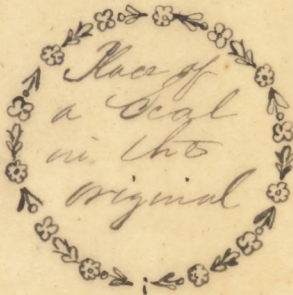 Place of
a Seal
in the
original